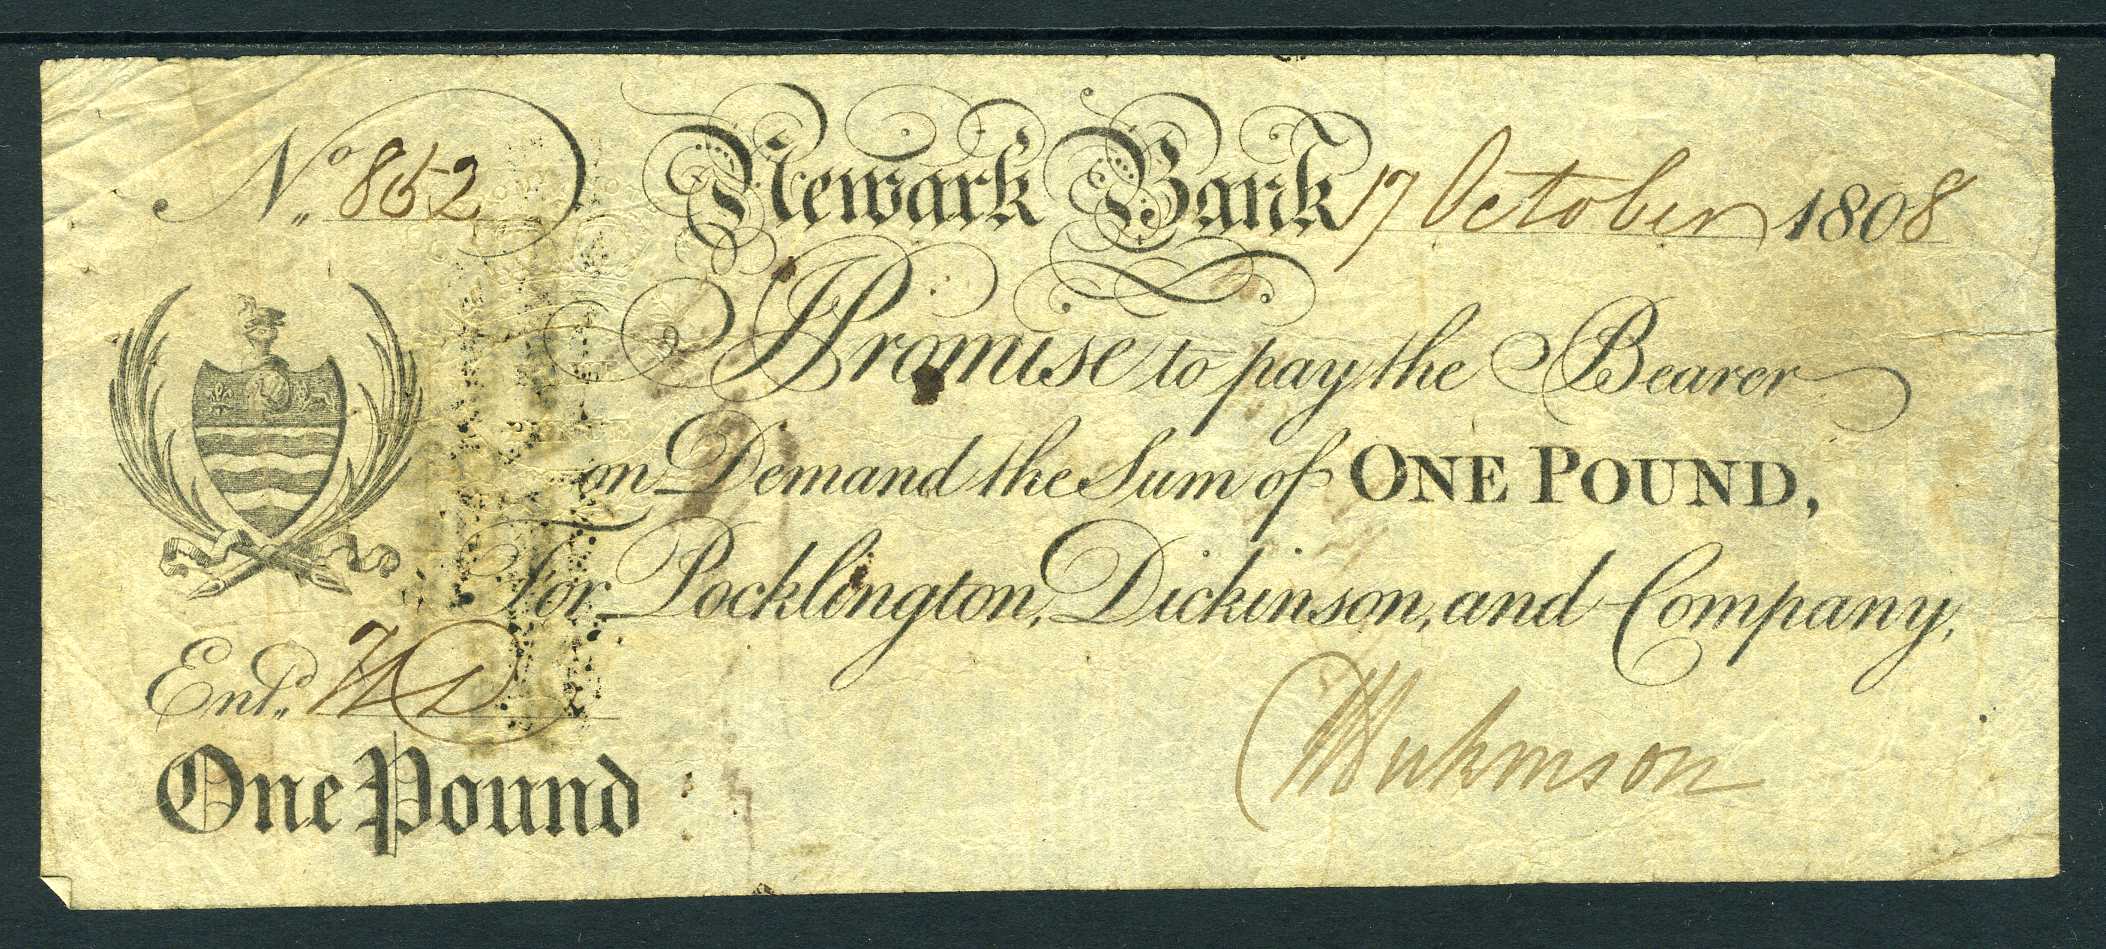 No. 852 Newark Bank 17 October 1808
I Promise to pay the Bearer
on Demand the Sum of ONE POUND,
For Pocklington, Dickinson, and Company,
Entd.
One Pound